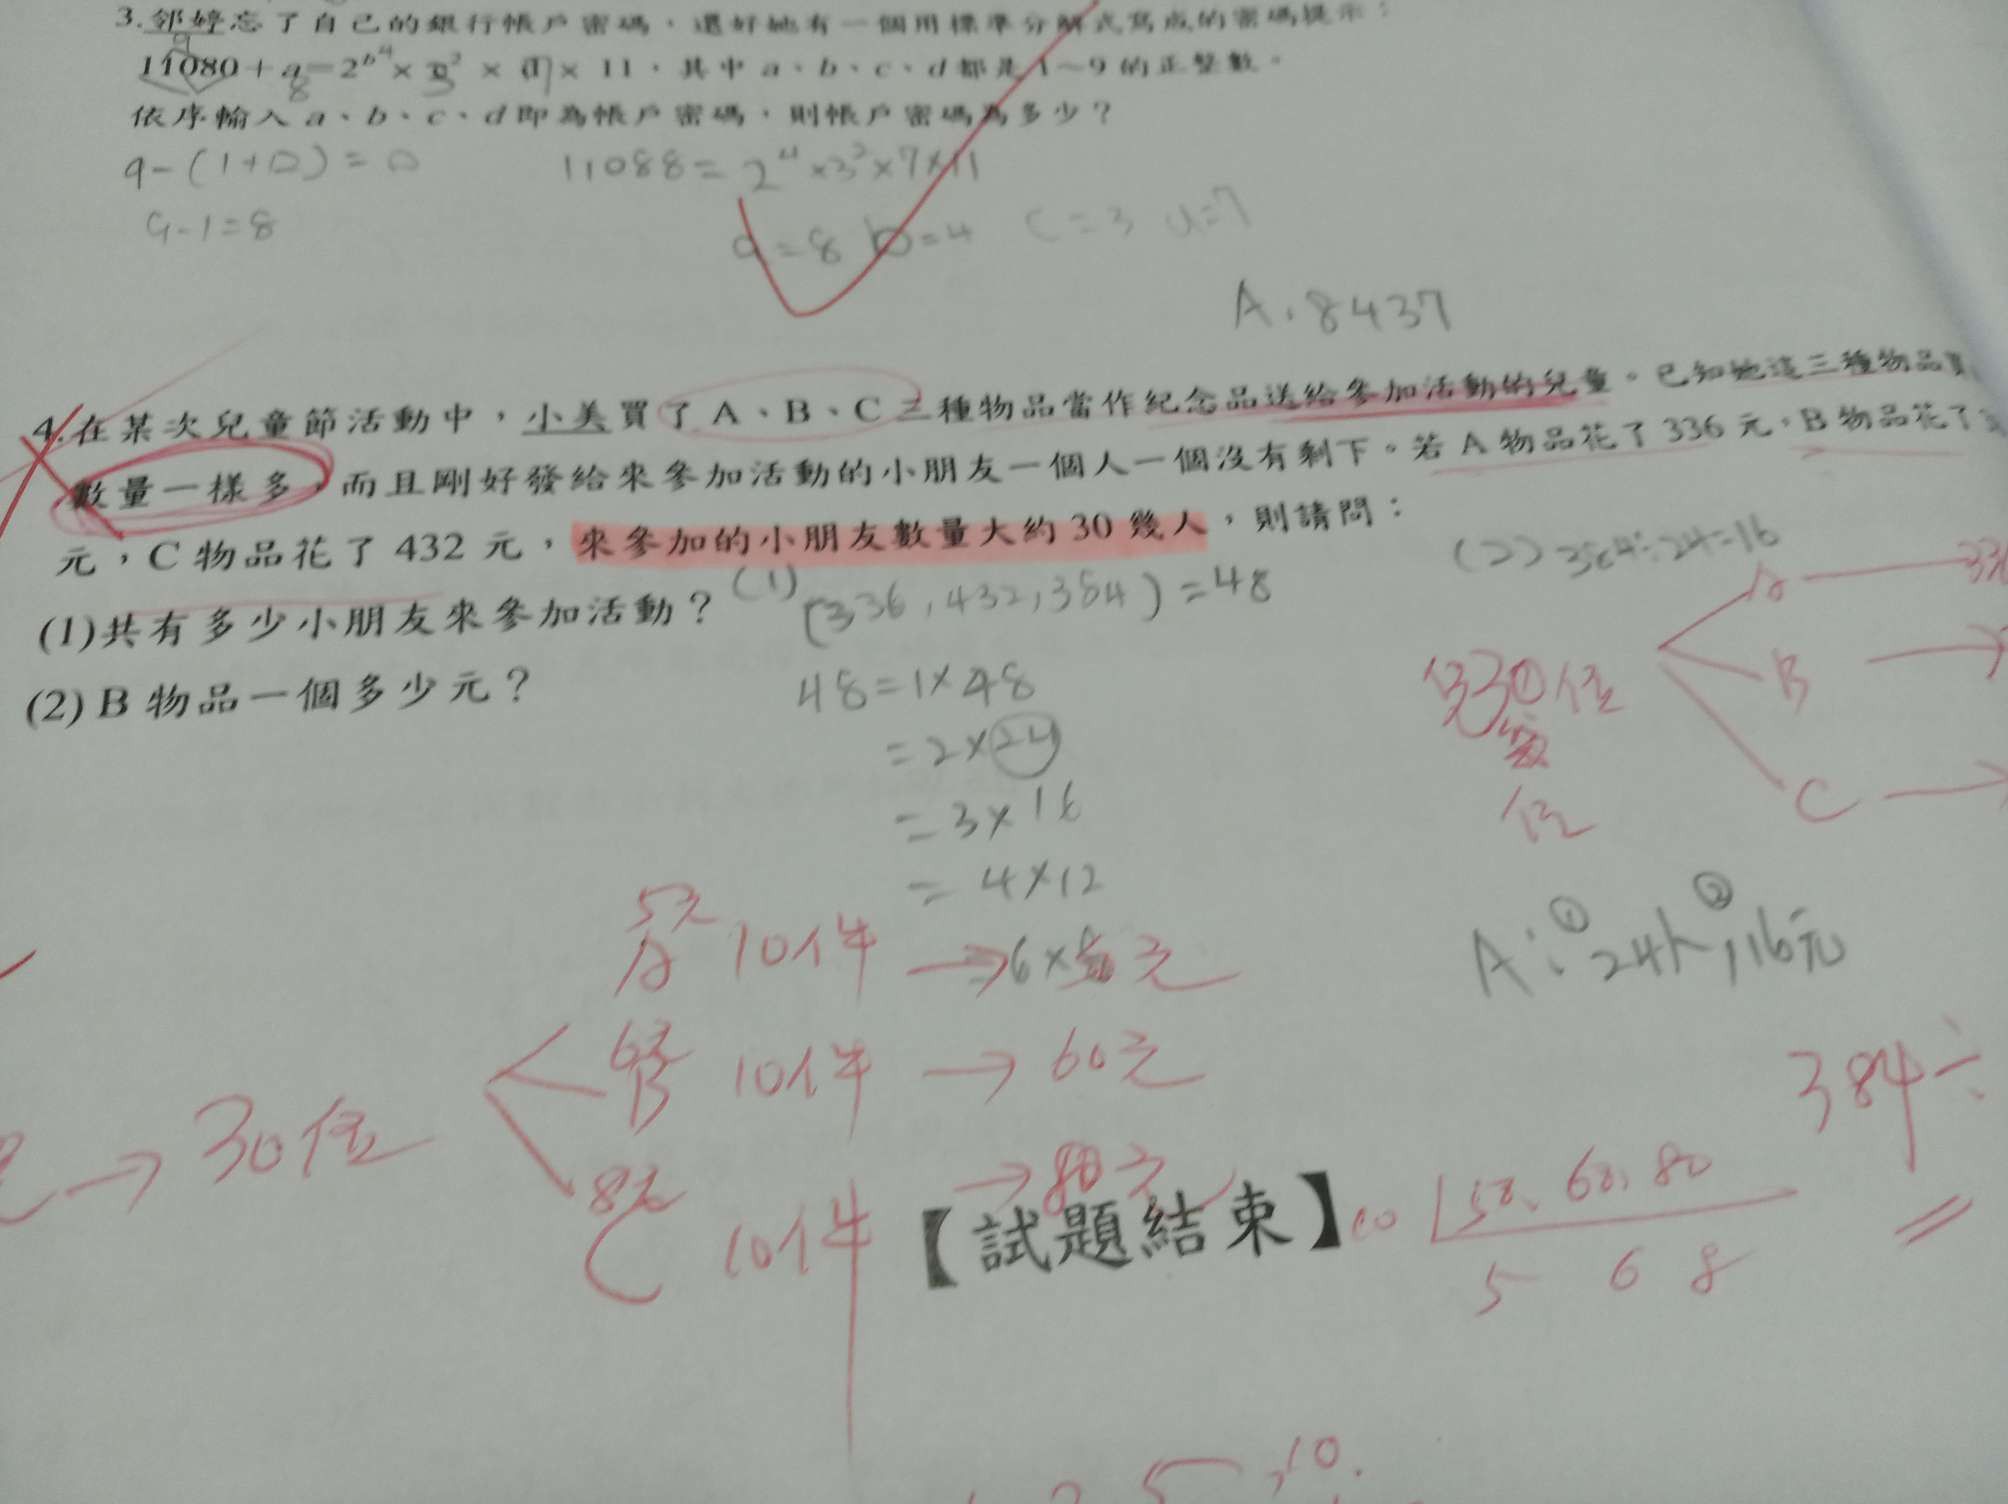 3.邠婷忘了自己的銀行帳戶密碼，還好她有一個用標準分解式寫成的密碼提示：
11080+a=2ᵇ × × × 11，其中 a、b、c、d 都是 1～9 的正整數。
8
依序輸入 a、b、c、d 即為帳戶密碼，則帳戶密碼為多少？
a-(1+0)=0
11088=2⁴×3²×7×11
9-1=8
a=8 b=4 c=3 d=7
A. 8437
4.在某次兒童節活動中，小美買了 A、B、C 三種物品當作紀念品送給參加活動的兒童。已知她這三種物品買
數量一樣多，而且剛好發給來參加活動的小朋友一個人一個沒有剩下。若 A 物品花了 336 元，B 物品花了
元，C 物品花了 432 元，來參加的小朋友數量大約 30 幾人，則請問：
(2) 384÷24=16
(1)共有多少小朋友來參加活動？
(1) (336,432,384)=48
(2) B 物品一個多少元？
48=1×48
=2×24
=3×16
=4×12
A
B
C
30位
位
A：①24人②,16元
5元
A 10件 →
6元
B 10件 → 60元
→ 30位
8元
C 10件 → 80元
384÷
=
【試題結束】
10 50、60、80
5 6 8
10.